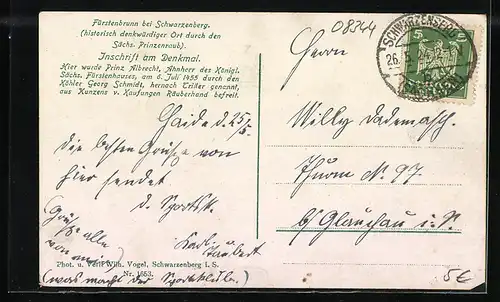 Fürstenbrunn bei Schwarzenberg.
(historisch denkwürdiger Ort durch den
Sächs. Prinzenraub).
Inschrift am Denkmal.
Hier wurde Prinz Albrecht, Ahnherr des Königl.
Sächs. Fürstenhauses, am 8. Juli 1455 durch den
Köhler Georg Schmidt, hernach Triller genannt,
aus Kunzens v. Kaufungen Räuberhand befreit.
Haide d. 25/5
die besten Grüße von
hier sendet
d. Sportsk.
Karl
Taubert
(Grüße alle
von mir)
Phot. u. Verl. Wilh. Vogel, Schwarzenberg i. S.
Nr. 1653.
(was macht der Sportklub.)
08344
SCHWARZENBERG
26.5
5
Herrn
Willy Dademasch.
Thurm No. 97.
b/ Glauchau i. S.
5€